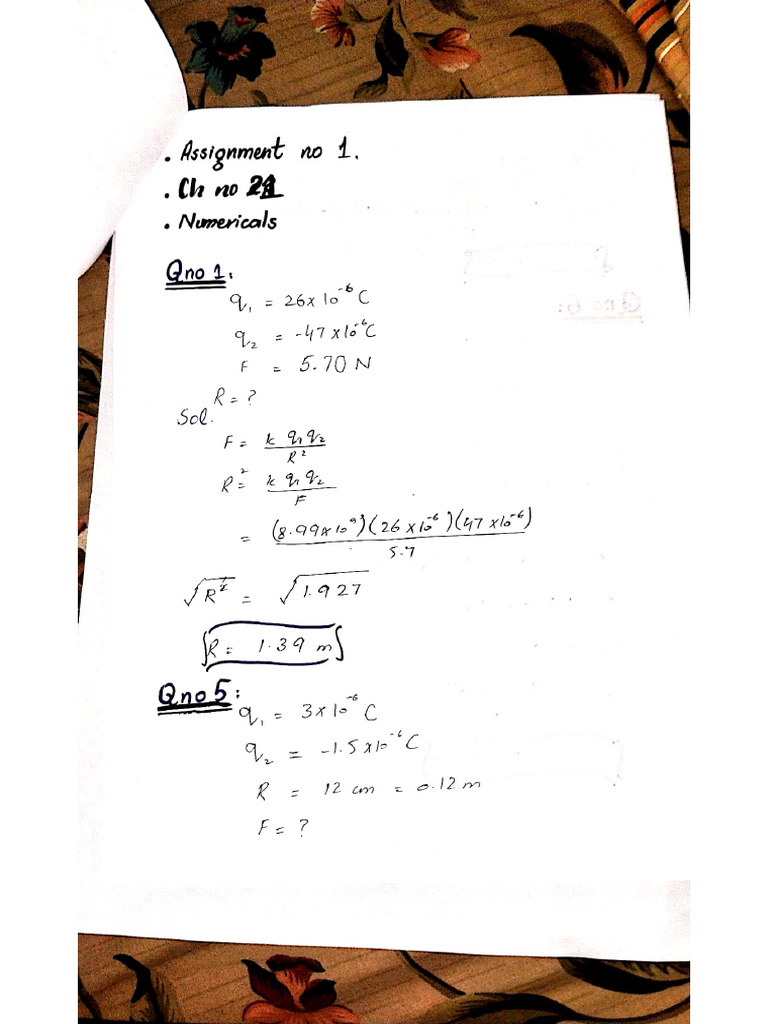 . Assignment no 1.
. Ch no 21
. Numericals
Qno 1:
q₁ = 26 x 10⁻⁶ C
q₂ = -47 x 10⁻⁶ C
F = 5.70 N
R = ?
Sol.
F = k q₁ q₂ / R²
R² = k q₁ q₂ / F
= (8.99 x 10⁹) (26 x 10⁻⁶) (47 x 10⁻⁶) / 5.7
√R² = √1.927
R = 1.39 m
Qno 5:
q₁ = 3 x 10⁻⁶ C
q₂ = -1.5 x 10⁻⁶ C
R = 12 cm = 0.12 m
F = ?